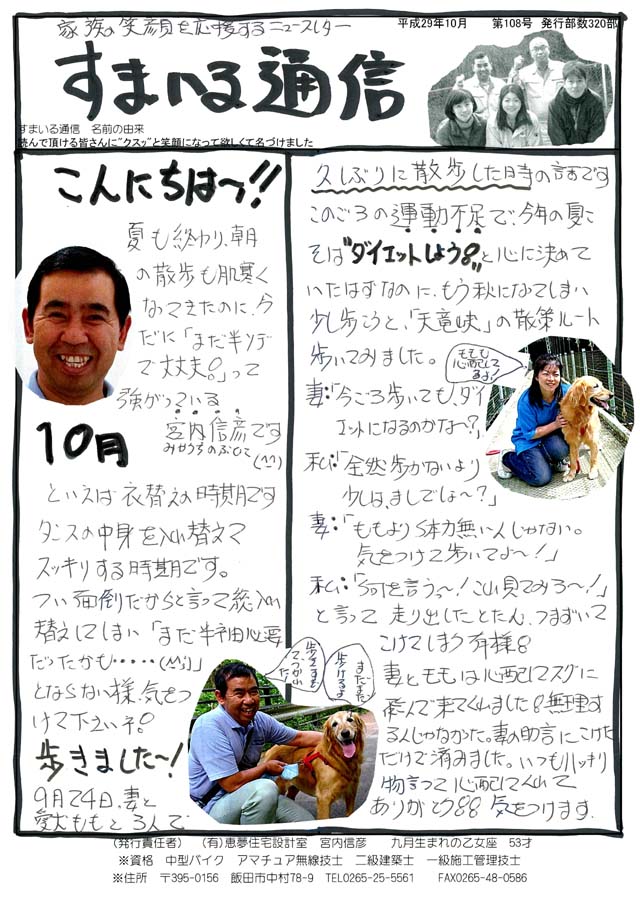 家族の笑顔を応援するニュースレター
平成29年10月 第108号 発行部数320部
すまいる通信
すまいる通信 名前の由来
読んで頂ける皆さんに"クスッ"と笑顔になって欲しくて名づけました
こんにちはーっ!!
夏も終わり、朝
の散歩も肌寒く
なってきたのに、今
だに「まだ半ソデ
で大丈夫!」って
強がっている
宮内信彦です
みやうちのぶひこ(^^)
10月
といえば衣替えの時期です
タンスの中身を入れ替えて
スッキリする時期です。
つい面倒だからと言って総入れ
替えしてしまい「まだ半袖必要
だったかも・・・・・(^^;)」
とならない様、気をつ
けて下さいネ!
歩きました〜!
9月24日、妻と
愛犬ももと3人で
久しぶりに散歩した時の話です
このごろの運動不足で、今年の夏こ
そは"ダイエットしよう!!"と心に決めて
いたはずなのに、もう秋になってしまい
少し歩こうと、「天竜峡」の散策ルート
歩いてみました。
ももも
心配してるよ!
妻:「今ごろ歩いても、ダイ
エットになるのかな〜?」
私:「全然歩かないより
少しは、ましでしょ〜?」
妻:「ももより体力無いんじゃない。
気をつけて歩いてよ〜!」
私:「何を言うっ〜!これ見てみろ〜!」
と言って走り出したとたん、つまずいて
こけてしまう有様!!
妻とももは心配してスグに
飛んで来てくれました!!無理す
るんじゃなかった。妻の助言にこけた
だけで済みました。いつもハッキリ
物言って心配してくれて
ありがとう!!気をつけます。
まだまだ
歩けるよ
(発行責任者) (有)恵夢住宅設計室 宮内信彦 九月生まれの乙女座 53才
※資格 中型バイク アマチュア無線技士 二級建築士 一級施工管理技士
※住所 〒395-0156 飯田市中村78-9 TEL0265-25-5561 FAX0265-48-0586